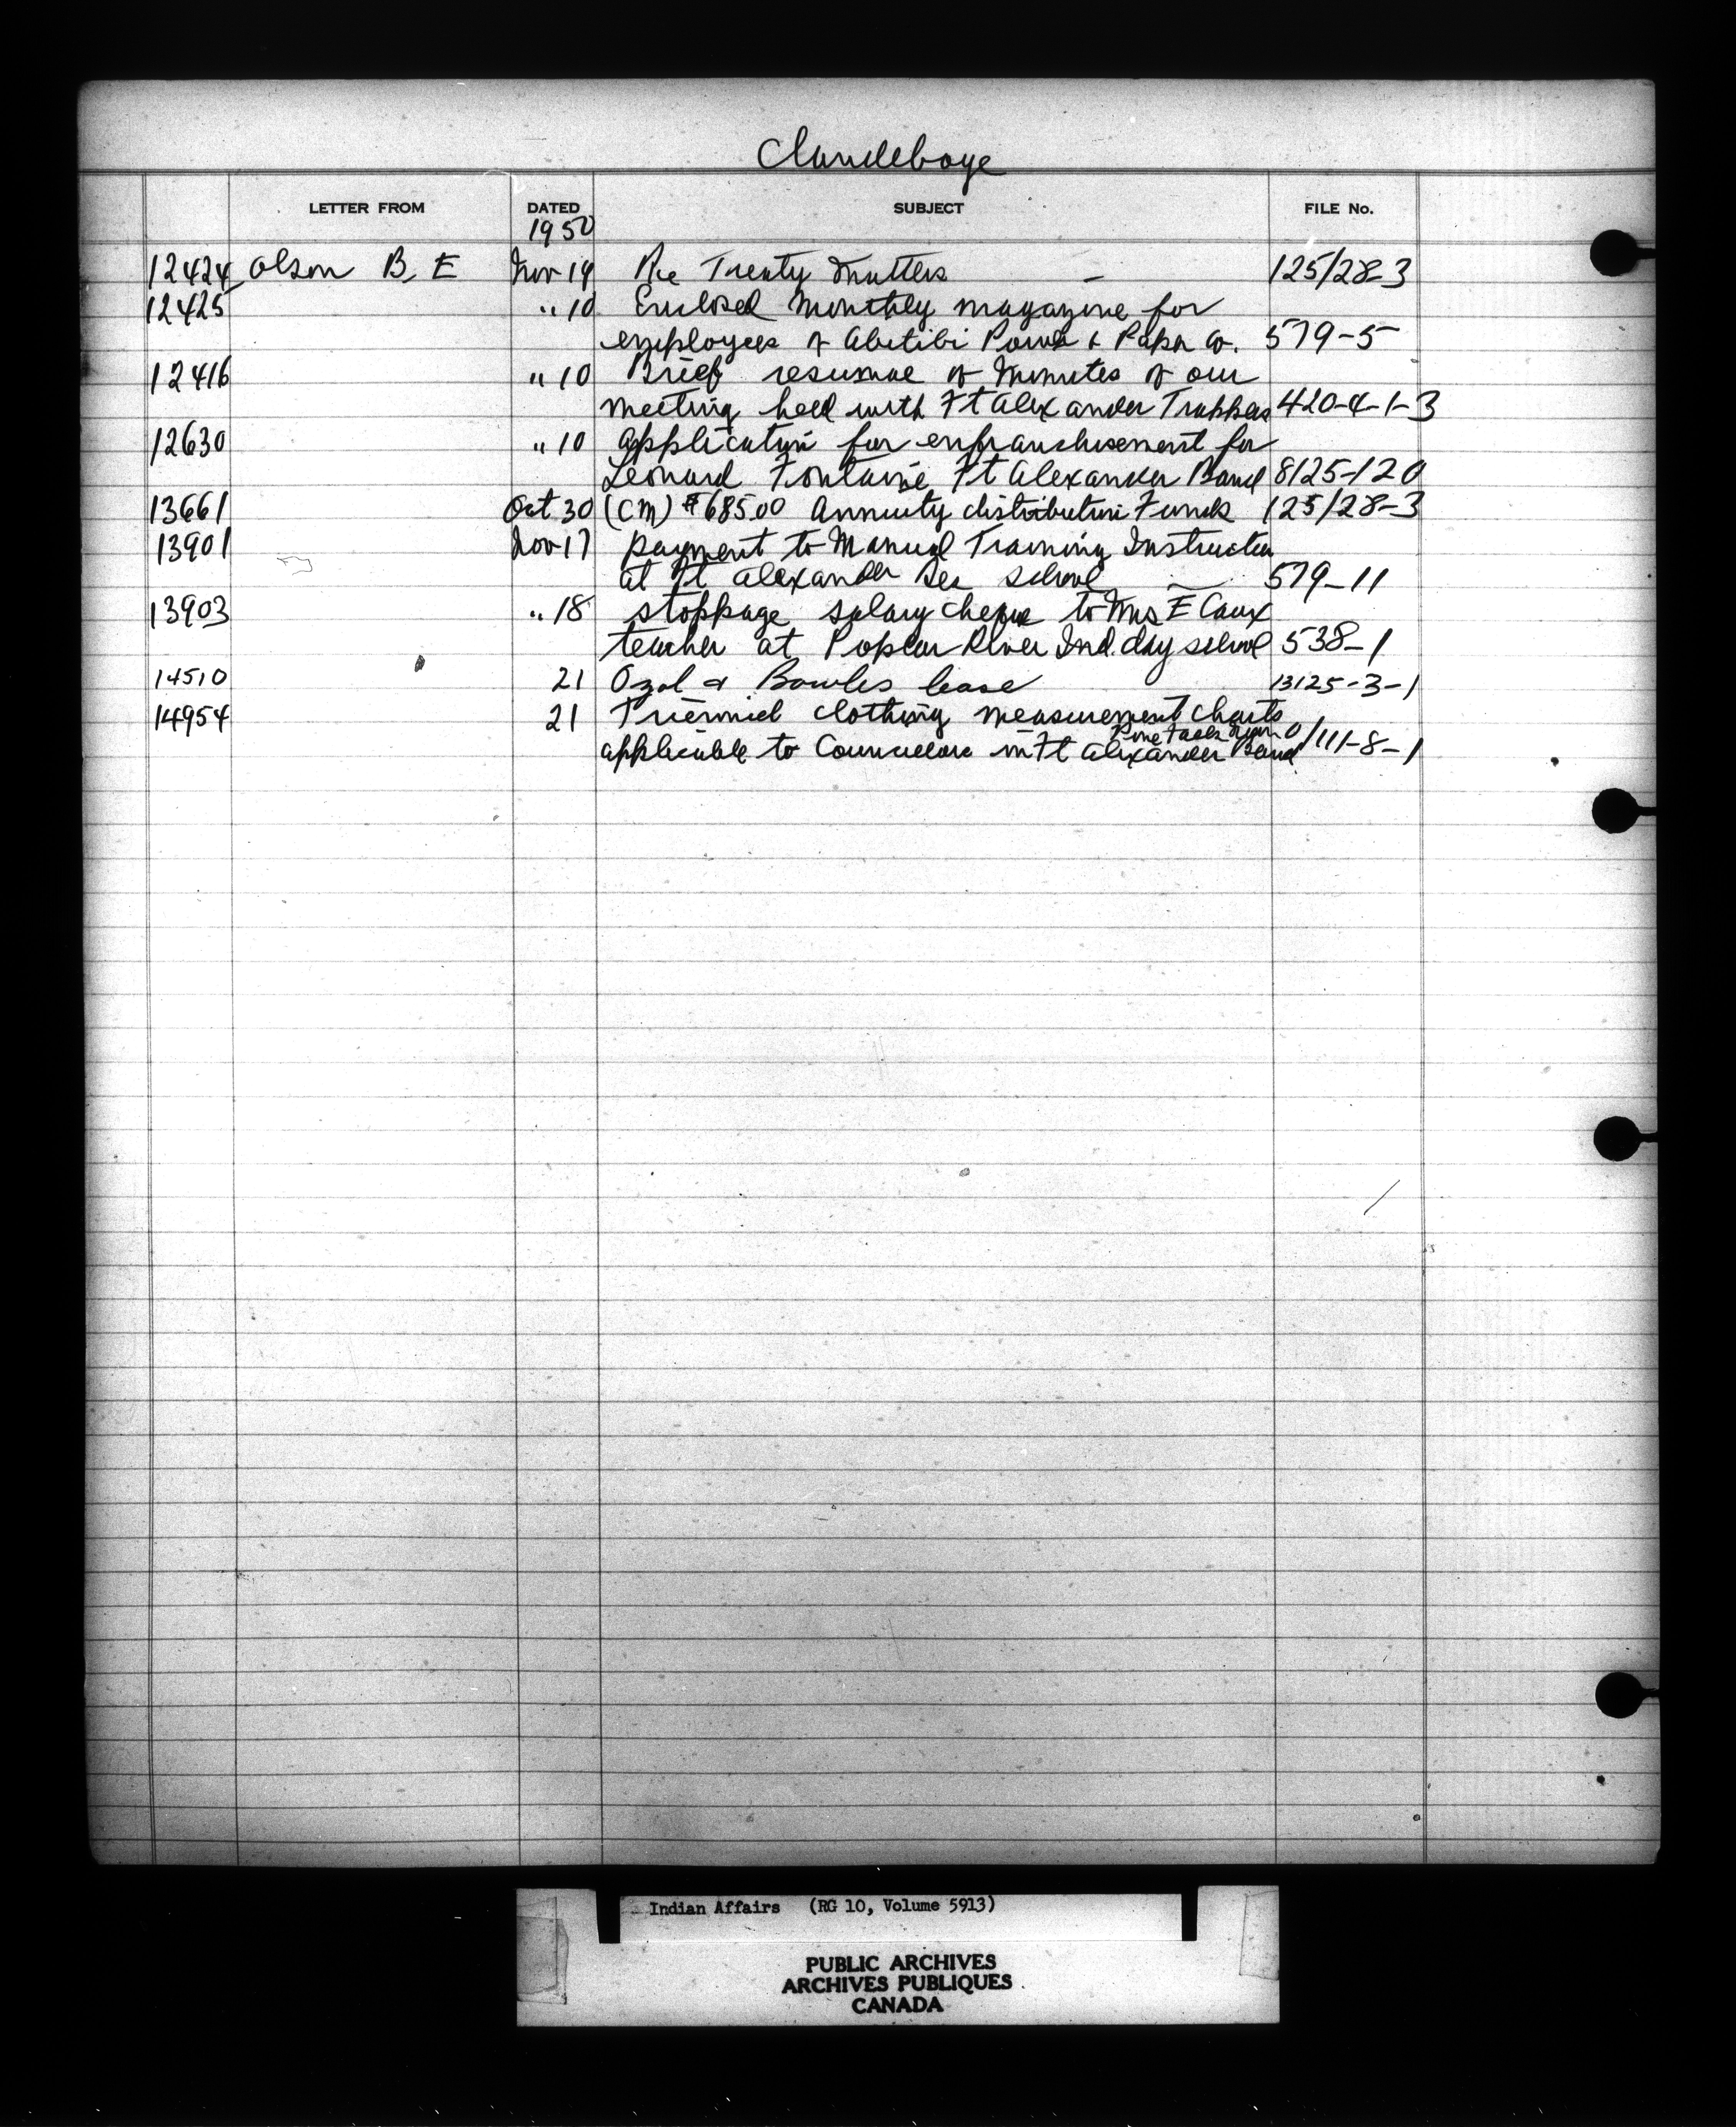 Clandeboye
LETTER FROM DATED SUBJECT FILE No.
1950
12424 Olson B. E Nov 19 Re Treaty Matters - 125/28-3
12425 " 10 Enclosed Monthly magazine for
employees of Abitibi Power & Paper Co. 579-5
12416 " 10 Brief resumae of Minutes of our
meeting held with Ft Alexander Trappers 420-4-1-3
12630 " 10 Application for enfranchisement for
Leonard Fontaine Ft Alexander Band 8125-120
13661 Oct 30 (CM) $685.00 Annuity distribution Funds 125/28-3
13901 Nov 17 payment to Manual Training Instructor
at Ft Alexander Res School 579-11
13903 " 18 stoppage salary cheque to Mrs E Caux
teacher at Poplar River Ind. day school 538-1
14510 21 & Bowles lease 13125-3-1
14954 21 Triennial clothing measurement charts
applicable to Councillors in Ft Alexander Band 0/111-8-1
Indian Affairs (RG 10, Volume 5913)
PUBLIC ARCHIVES
ARCHIVES PUBLIQUES
CANADA